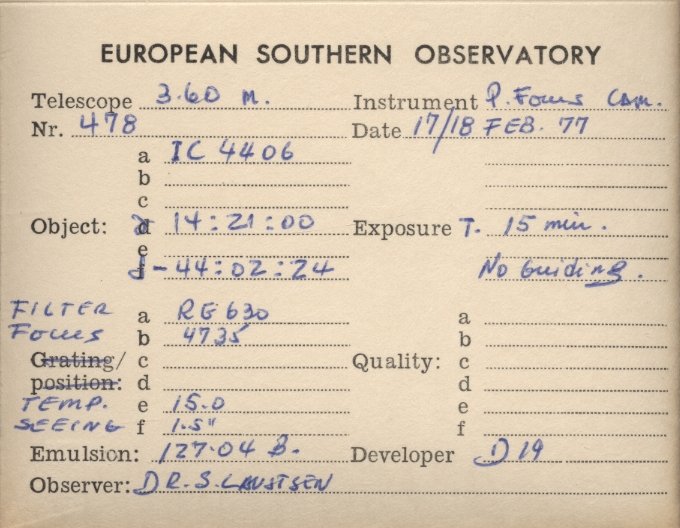 EUROPEAN SOUTHERN OBSERVATORY
Telescope 3.60 M. Instrument P. Focus Cam.
Nr. 478 Date 17/18 FEB. 77
a IC 4406
b
c
Object: α 14:21:00 Exposure T. 15 min.
e
δ -44:02:24 No Guiding.
FILTER a RG 630 a
Focus b 4735 b
Grating/ c Quality: c
position: d d
TEMP. e 15.0 e
SEEING f 1.5" f
Emulsion: 127.04 B. Developer D 19
Observer: DR. S. LAUSTSEN